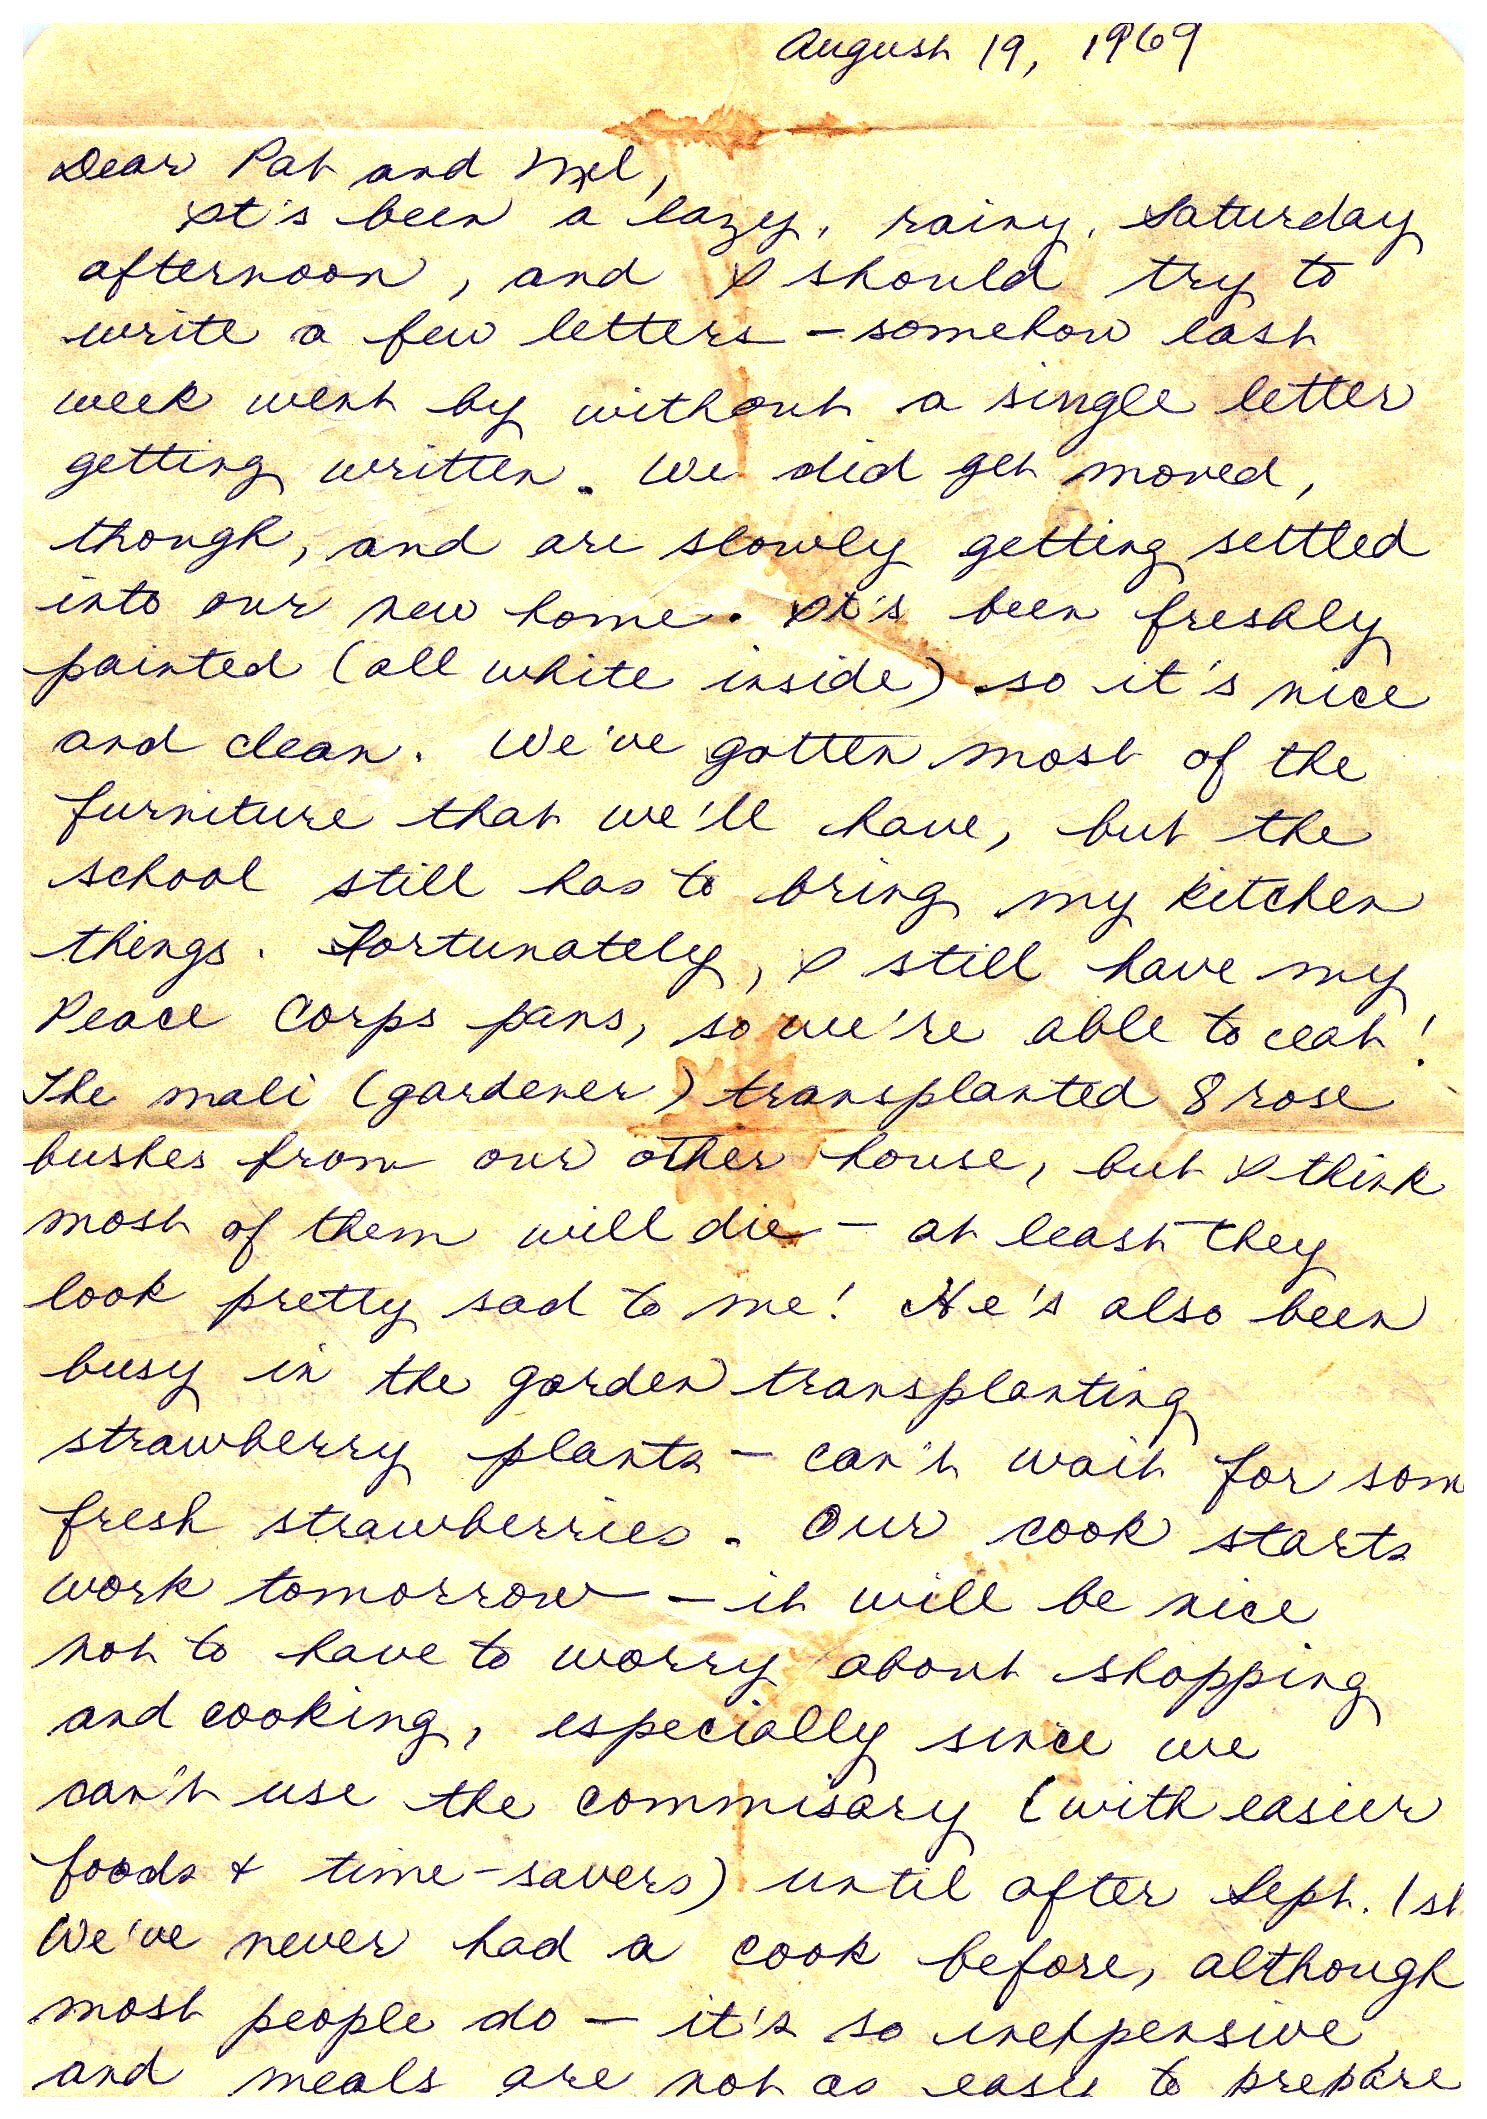 August 19, 1969
Dear Pat and Mel,
It's been a lazy, rainy, Saturday
afternoon, and I should try to
write a few letters - somehow last
week went by without a single letter
getting written. We did get moved,
though, and are slowly getting settled
into our new home. It's been freshly
painted (all white inside) so it's nice
and clean. We've gotten most of the
furniture that we'll have, but the
school still has to bring my kitchen
things. Fortunately, I still have my
Peace Corps pans, so we're able to eat!
The mali (gardener) transplanted 8 rose
bushes from our other house, but I think
most of them will die - at least they
look pretty sad to me! He's also been
busy in the garden transplanting
strawberry plants - can't wait for som
fresh strawberries. Our cook starts
work tomorrow - it will be nice
not to have to worry about shopping
and cooking, especially since we
can't use the commisary (with easier
foods + time-savers) until after Sept. 1st
We've never had a cook before, although
most people do - it's so inexpensive,
and meals are not as easy to prepare